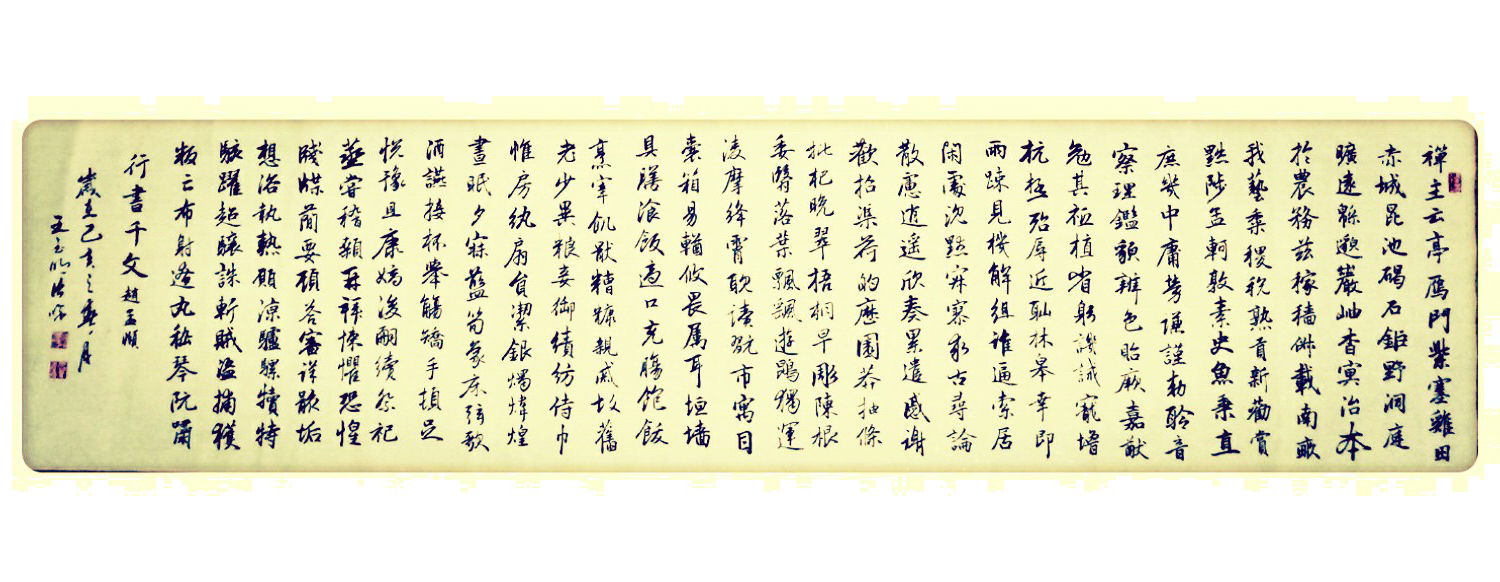 禪主云亭雁門紫塞雞田
赤城昆池碣石鉅野洞庭
曠遠緜邈巖岫杳冥治本
於農務茲稼穡俶載南畝
我藝黍稷稅熟貢新勸賞
黜陟孟軻敦素史魚秉直
庶幾中庸勞謙謹勅聆音
察理鑑貌辨色貽厥嘉猷
勉其祗植省躬譏誡寵增
抗極殆辱近恥林皋幸即
兩疎見機解組誰逼索居
閑處沉默寂寥求古尋論
散慮逍遙欣奏累遣慼謝
歡招渠荷的歷園莽抽條
枇杷晚翠梧桐早彫陳根
委翳落葉飄颻遊鵾獨運
凌摩絳霄耽讀翫市寓目
囊箱易輶攸畏屬耳垣墻
具膳飡飯適口充腸飽飫
烹宰飢猒糟糠親戚故舊
老少異粮妾御績紡侍巾
帷房紈扇員潔銀燭煒煌
晝眠夕寐藍笋象床弦歌
酒讌接杯舉觴矯手頓足
悅豫且康嫡後嗣續祭祀
蒸嘗稽顙再拜悚懼恐惶
牋牒簡要顧答審詳骸垢
想浴執熱願涼驢騾犢特
駭躍超驤誅斬賊盜捕獲
叛亡布射遼丸嵇琴阮嘯
行書千文趙孟頫
歲在己亥之月
王